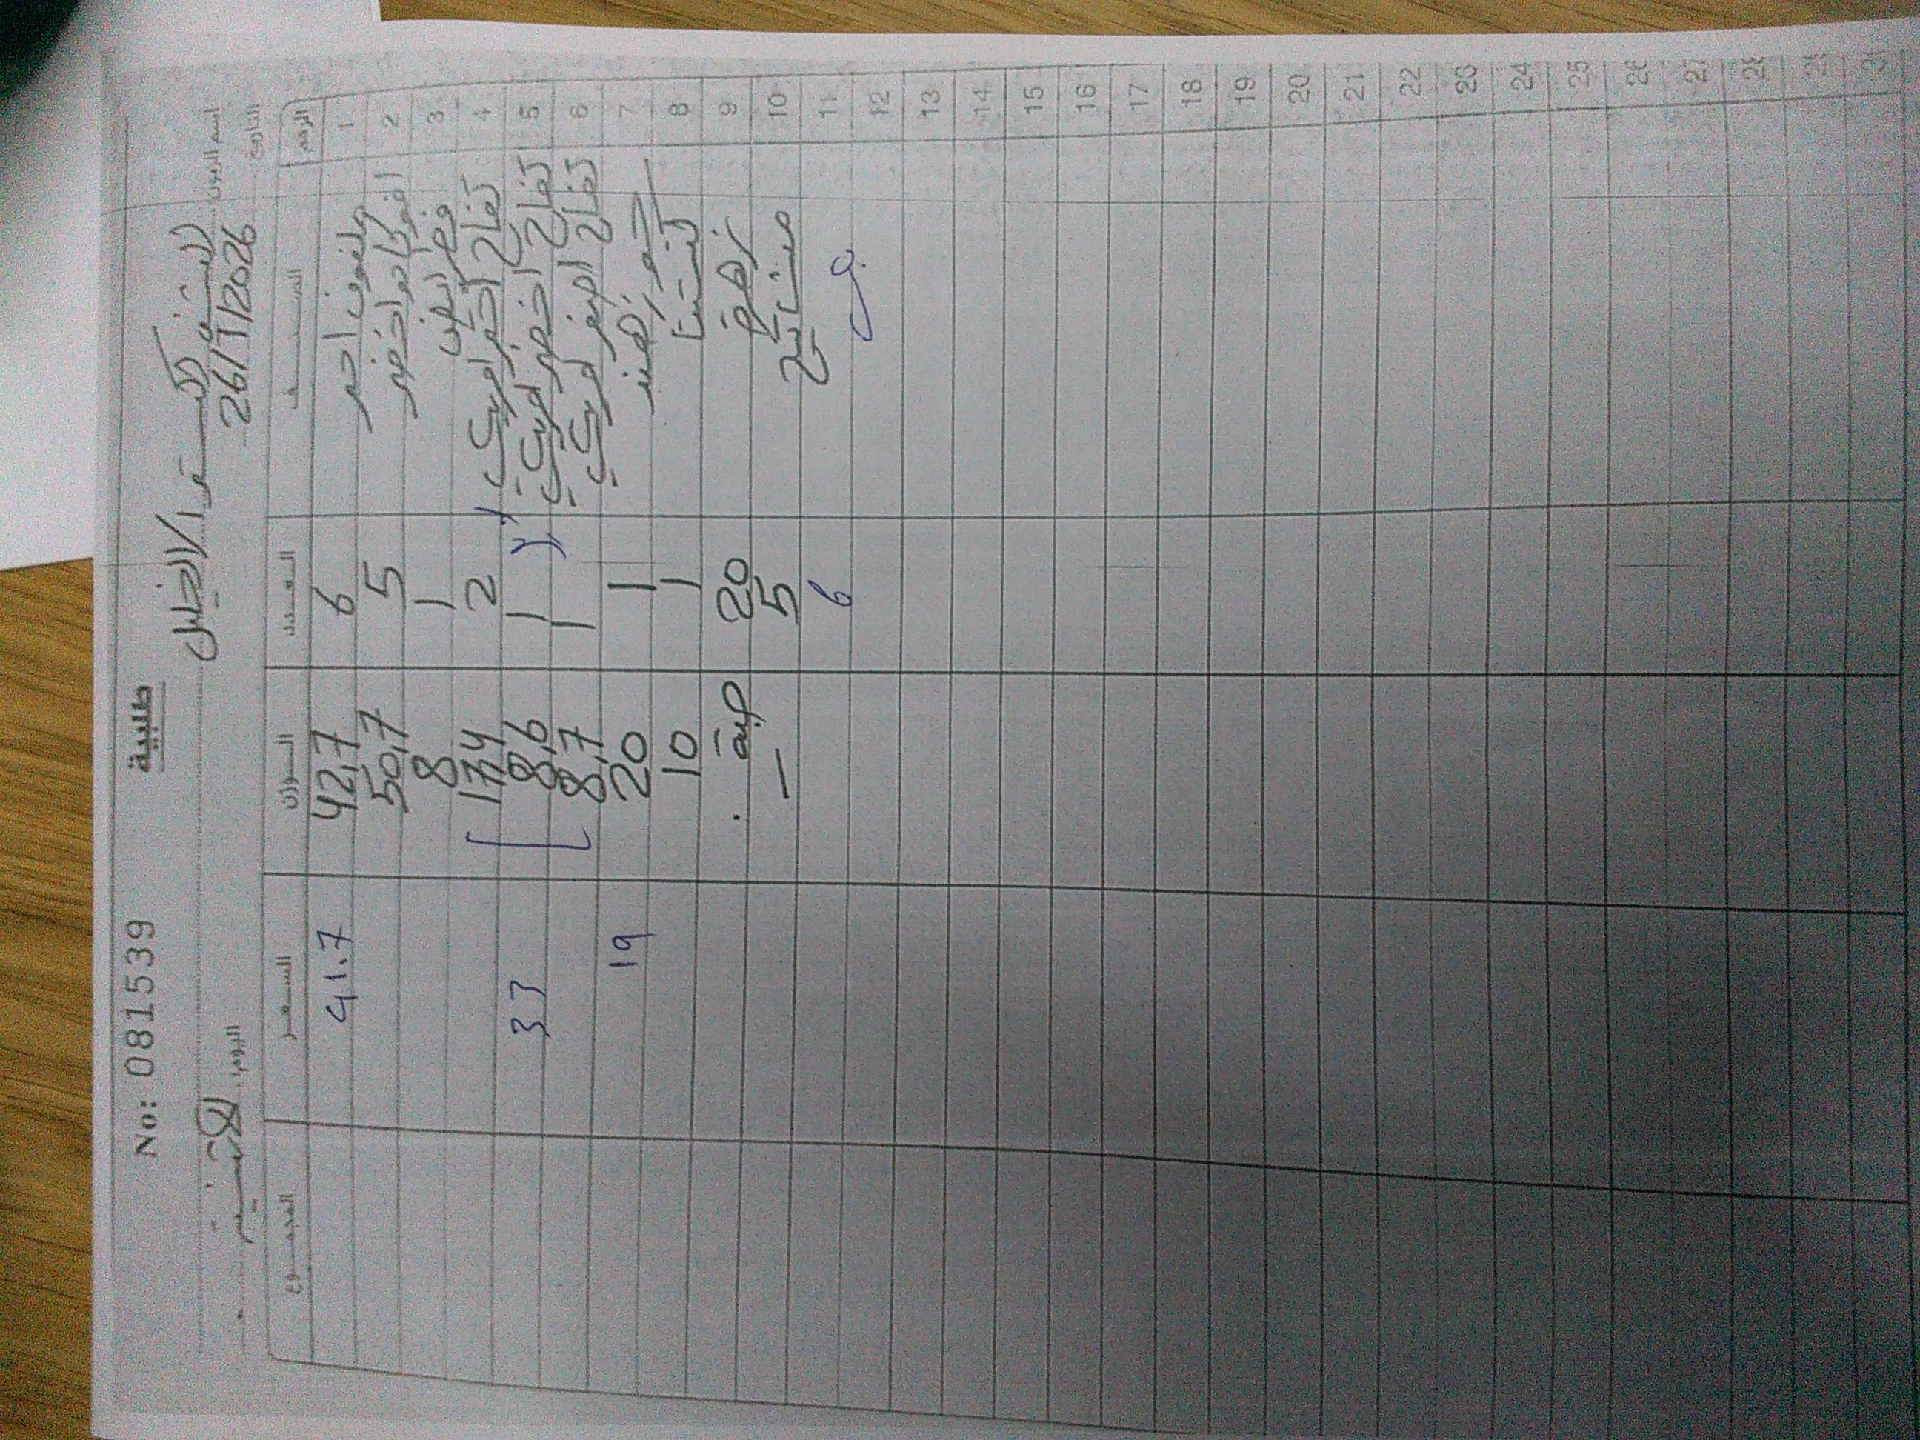 No: 081539
طلبية
اسم الزبون
التاريخ 26/1/2026
اليوم
الرقم الصنف العدد الوزن السعر المجموع
1 ملفوف احمر 6 42,7 41.7
2 افوكادو اخضر 5 50,7
3 ابيض 1 8
4 تفاح احمر امريكي 2 17,4
5 تفاح اخضر امريكي 1 8,6 33
6 تفاح اصفر امريكي 1 8,7
7 جزر 1 20 19
8 كستنا 1 10
9 زهرة 20 حبة
10 مشاتيح 5 —
11 6
12
13
14
15
16
17
18
19
20
21
22
23
24
25
26
27
28
29